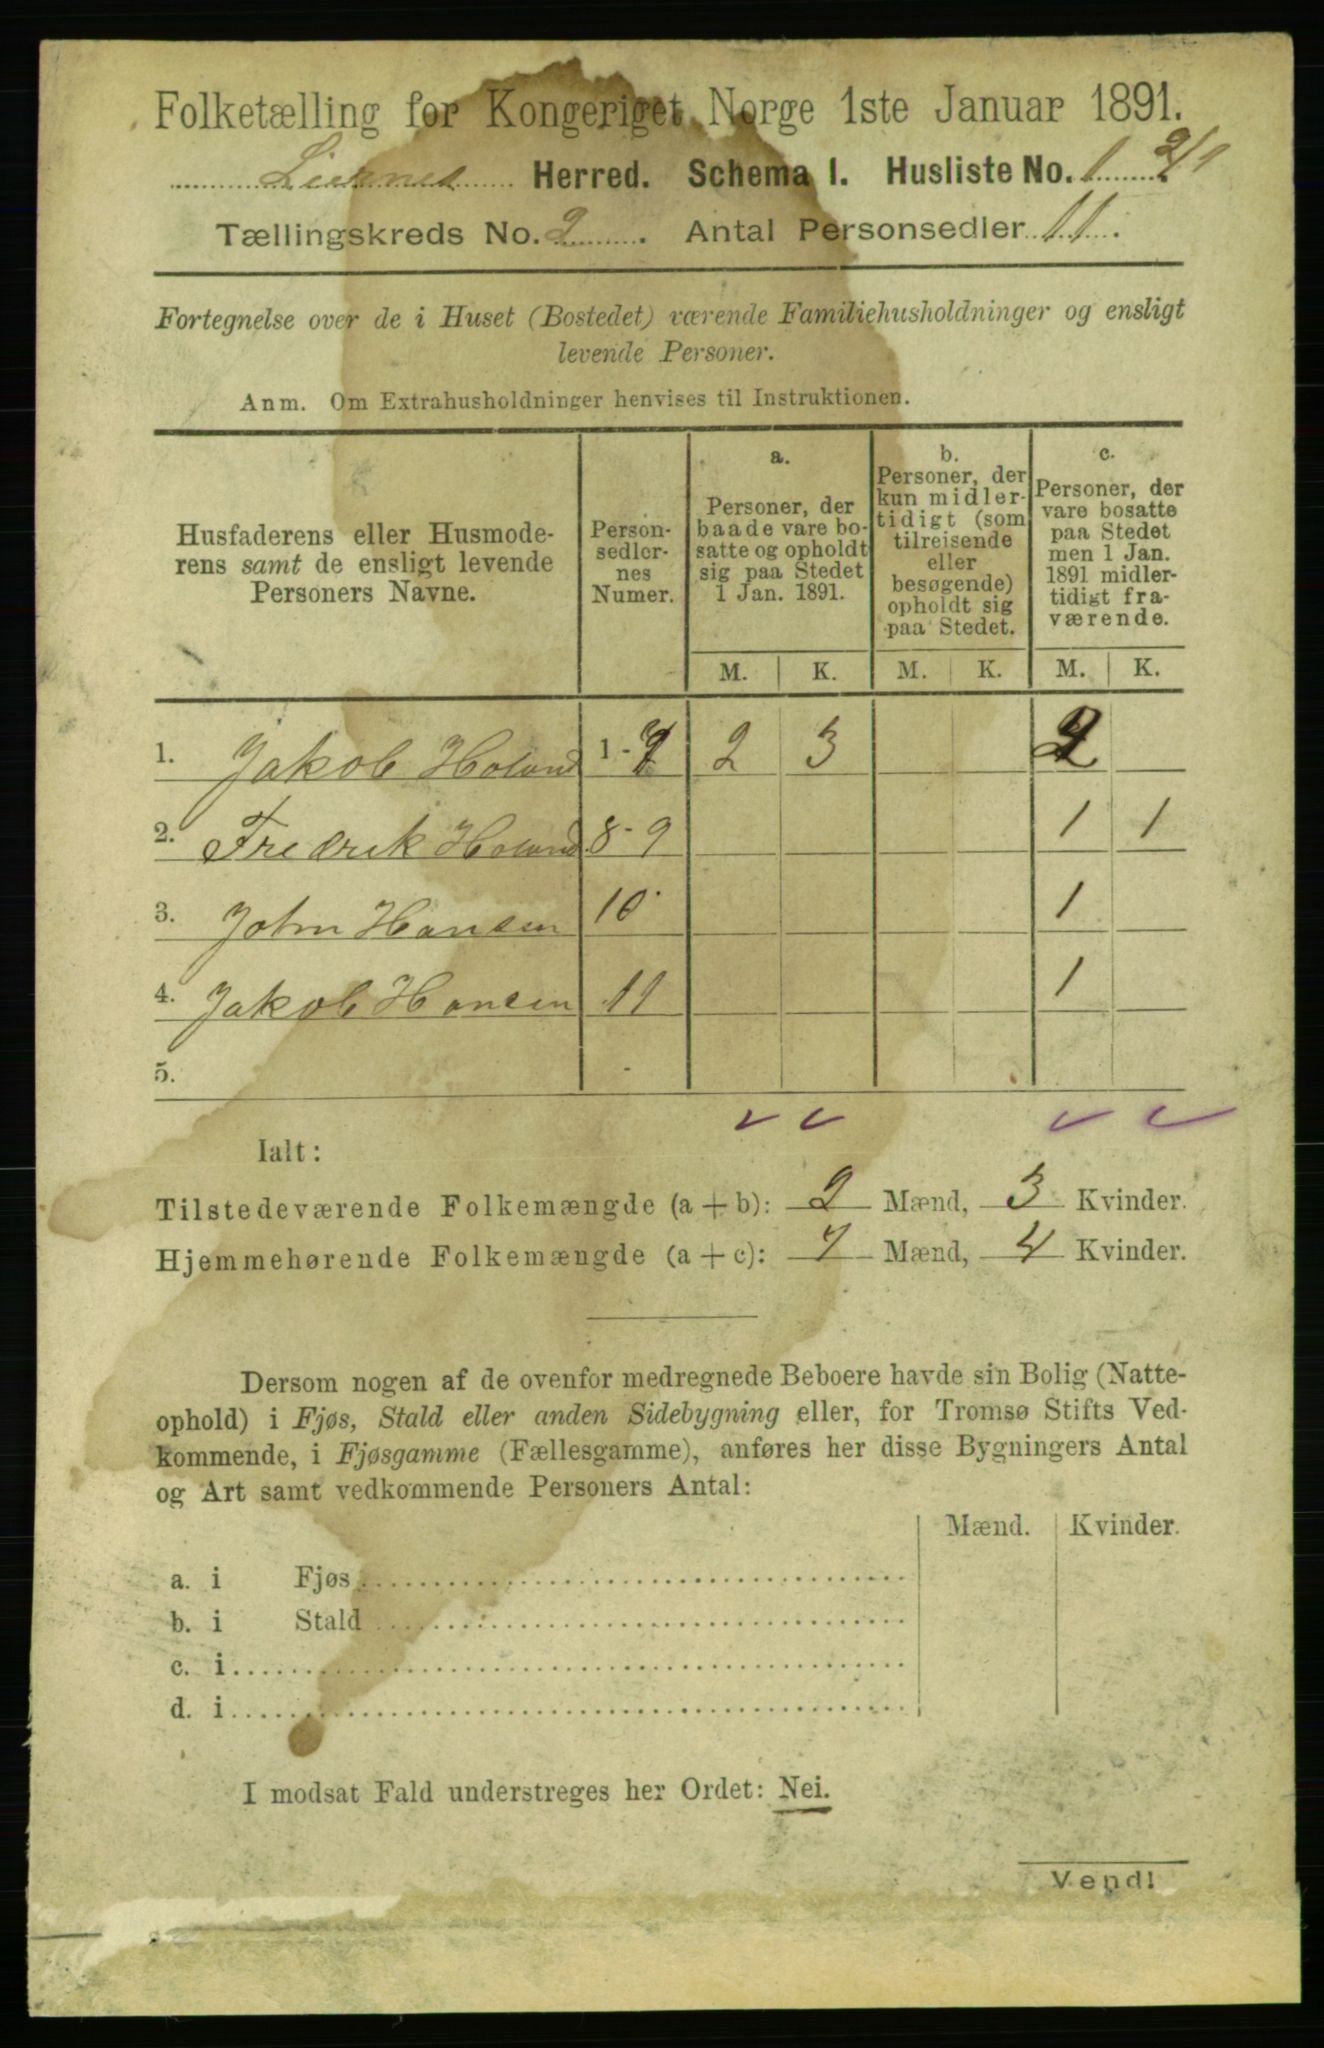 Folketælling for Kongeriget Norge 1ste Januar 1891.
Herred. Schema I. Husliste No. 1 2/1
Tællingskreds No. 2. Antal Personsedler 11.
Fortegnelse over de i Huset (Bostedet) værende Familiehusholdninger og ensligt
levende Personer.
Anm. Om Extrahusholdninger henvises til Instruktionen.
Husfaderens eller Husmode-
rens samt de ensligt levende
Personers Navne.
Person-
sedler-
nes
Numer.
a.
Personer, der
baade vare bo-
satte og opholdt
sig paa Stedet
1 Jan. 1891.
b.
Personer, der
kun midler-
tidigt (som
tilreisende
eller
besøgende)
opholdt sig
paa Stedet.
c.
Personer, der
vare bosatte
paa Stedet
men 1 Jan.
1891 midler-
tidigt fra-
værende.
M. K. M. K. M. K.
1. Jakob Holand 1-7 2 3 2
2. Fredrik Holand 8-9 1 1
3. John Hansen 10 1
4. Jakob Hansen 11 1
5.
Ialt:
Tilstedeværende Folkemængde (a + b): 2 Mænd, 3 Kvinder.
Hjemmehørende Folkemængde (a + c): 7 Mænd, 4 Kvinder.
Dersom nogen af de ovenfor medregnede Beboere havde sin Bolig (Natte-
ophold) i Fjøs, Stald eller anden Sidebygning eller, for Tromsø Stifts Ved-
kommende, i Fjøsgamme (Fællesgamme), anføres her disse Bygningers Antal
og Art samt vedkommende Personers Antal:
Mænd. Kvinder.
a. i Fjøs
b. i Stald
c. i
d. i
I modsat Fald understreges her Ordet: Nei.
Vend!